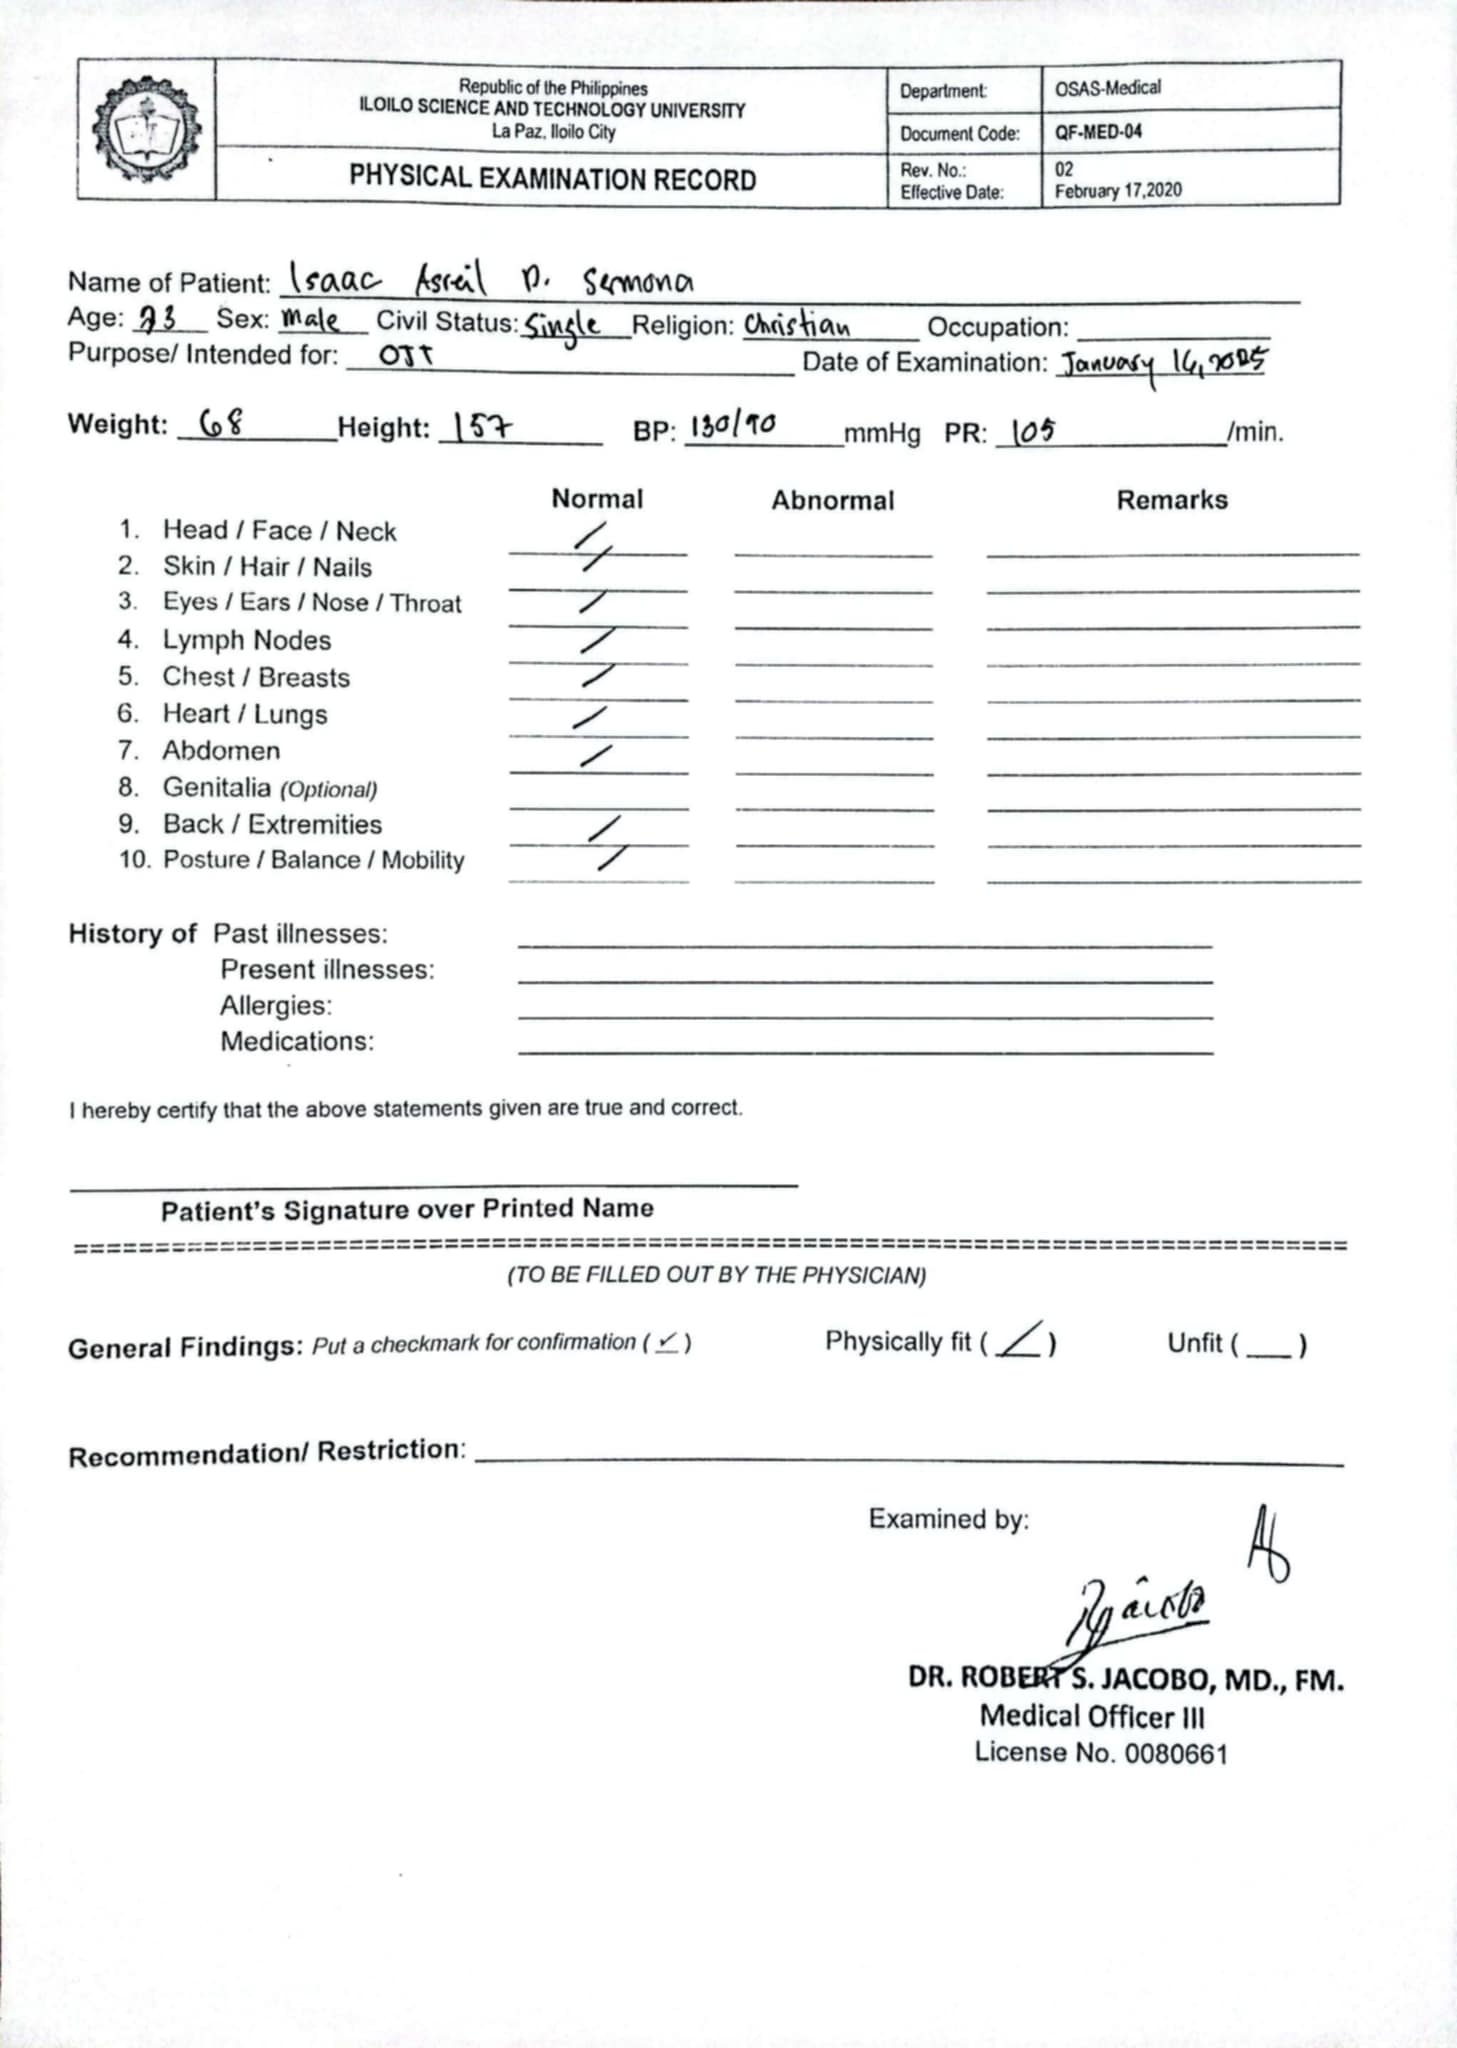 Republic of the Philippines
ILOILO SCIENCE AND TECHNOLOGY UNIVERSITY
La Paz, Iloilo City
PHYSICAL EXAMINATION RECORD
Department: OSAS-Medical
Document Code: QF-MED-04
Rev. No.: 02
Effective Date: February 17,2020
Name of Patient: Isaac Asreil D. Sermona
Age: 23 Sex: Male Civil Status: Single Religion: Christian Occupation:
Purpose/ Intended for: OJT Date of Examination: January 16, 2025
Weight: 68 Height: 157 BP: 130/90 mmHg PR: 105 /min.
Normal Abnormal Remarks
1. Head / Face / Neck /
2. Skin / Hair / Nails /
3. Eyes / Ears / Nose / Throat /
4. Lymph Nodes /
5. Chest / Breasts /
6. Heart / Lungs /
7. Abdomen /
8. Genitalia (Optional)
9. Back / Extremities /
10. Posture / Balance / Mobility /
History of Past illnesses:
Present illnesses:
Allergies:
Medications:
I hereby certify that the above statements given are true and correct.
Patient's Signature over Printed Name
(TO BE FILLED OUT BY THE PHYSICIAN)
General Findings: Put a checkmark for confirmation ( ✓ ) Physically fit ( / ) Unfit ( ___ )
Recommendation/ Restriction:
Examined by:
DR. ROBERT S. JACOBO, MD., FM.
Medical Officer III
License No. 0080661